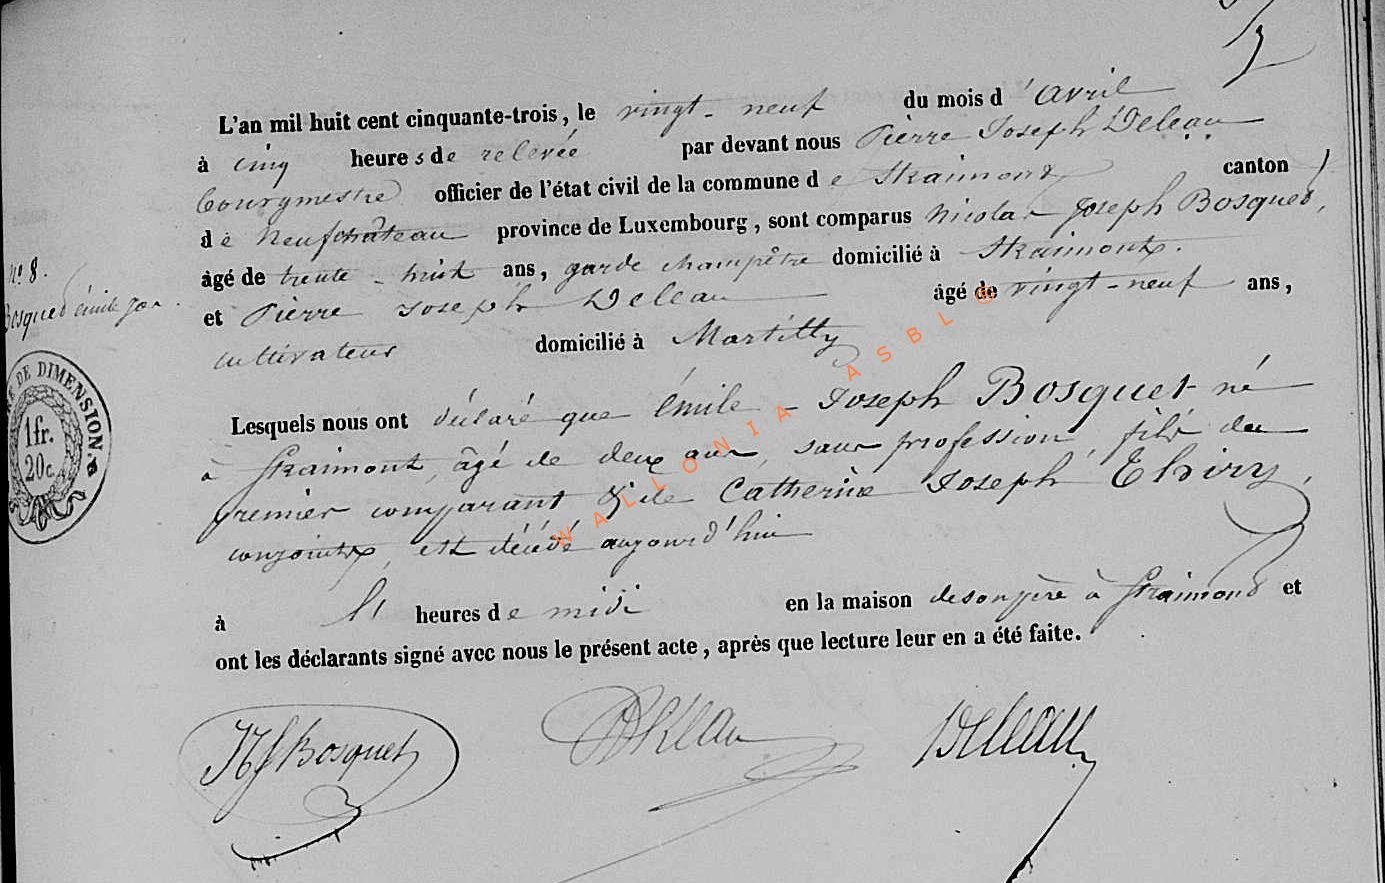 L'an mil huit cent cinquante-trois, le vingt-neuf du mois d'avril
à cinq heures de relevée par devant nous Pierre Joseph Deleau
bourgmestre officier de l'état civil de la commune de Straimont canton
de Neufchâteau province de Luxembourg, sont comparus Nicolas Joseph Bosquet,
âgé de trente-huit ans, garde champêtre domicilié à Straimont.
et Pierre Joseph Deleau âgé de vingt-neuf ans,
cultivateur domicilié à Martilly
n° 8.
Bosquet émile Jos
DE DIMENSION.
1fr.
20c.
Lesquels nous ont déclaré que émile-Joseph Bosquet né
à Straimont, âgé de deux ans, sans profession, fils du
premier comparant & de Catherine Joseph Thiry,
conjoints, est décédé aujourd'hui
à heures de midi en la maison de son père à Straimont et
ont les déclarants signé avec nous le présent acte, après que lecture leur en a été faite.
NJ Bosquet Deleau Deleau
WALLONIA ASBL ©